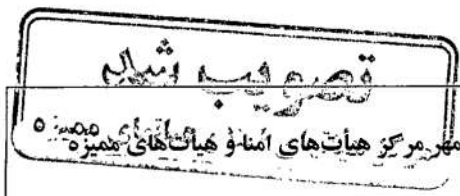 تصویب شد
مهر مرکز هیأت‌های امنا و هیأت‌های ممیزه